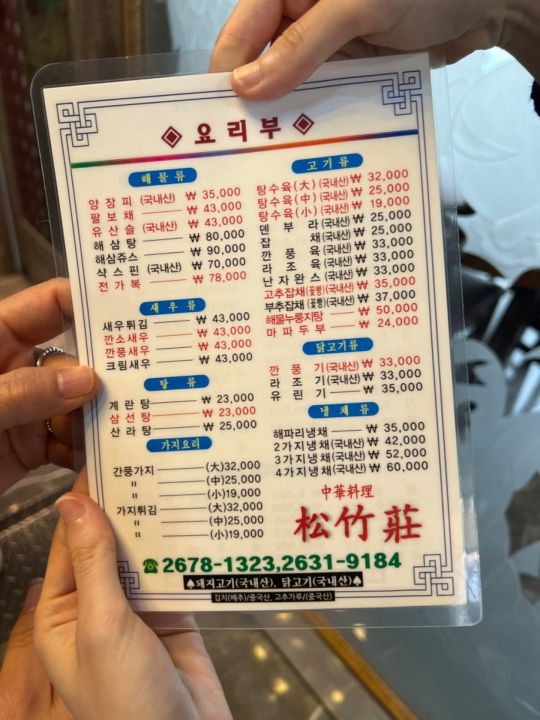 ◈ 요리부 ◈
해물류
양장피 (국내산) ₩ 35,000
팔보채 ₩ 43,000
유산슬 (국내산) ₩ 43,000
해삼탕 ₩ 80,000
해삼쥬스 ₩ 90,000
샥스핀 (국내산) ₩ 70,000
전가복 ₩ 78,000
새우류
새우튀김 ₩ 43,000
깐소새우 ₩ 43,000
깐풍새우 ₩ 43,000
크림새우 ₩ 43,000
탕류
계란탕 ₩ 23,000
삼선탕 ₩ 23,000
산라탕 ₩ 25,000
가지요리
간풍가지 (大)32,000
〃 (中)25,000
〃 (小)19,000
가지튀김 (大)32,000
〃 (中)25,000
〃 (小)19,000
고기류
탕수육(大)(국내산) ₩ 32,000
탕수육(中)(국내산) ₩ 25,000
탕수육(小)(국내산) ₩ 19,000
덴부라(국내산) ₩ 25,000
잡채(국내산) ₩ 25,000
깐풍육(국내산) ₩ 33,000
라조육(국내산) ₩ 33,000
난자완스(국내산) ₩ 33,000
고추잡채(꽃빵)(국내산) ₩ 35,000
부추잡채(꽃빵)(국내산) ₩ 37,000
해물누룽지탕 ₩ 50,000
마파두부 ₩ 24,000
닭고기류
깐풍기(국내산) ₩ 33,000
라조기(국내산) ₩ 33,000
유린기 ₩ 35,000
냉채류
해파리냉채 ₩ 35,000
2가지냉채(국내산) ₩ 42,000
3가지냉채(국내산) ₩ 52,000
4가지냉채(국내산) ₩ 60,000
中華料理
松竹莊
☎2678-1323,2631-9184
♠돼지고기(국내산), 닭고기(국내산)♠
김치(배추)/중국산, 고추가루/(중국산)